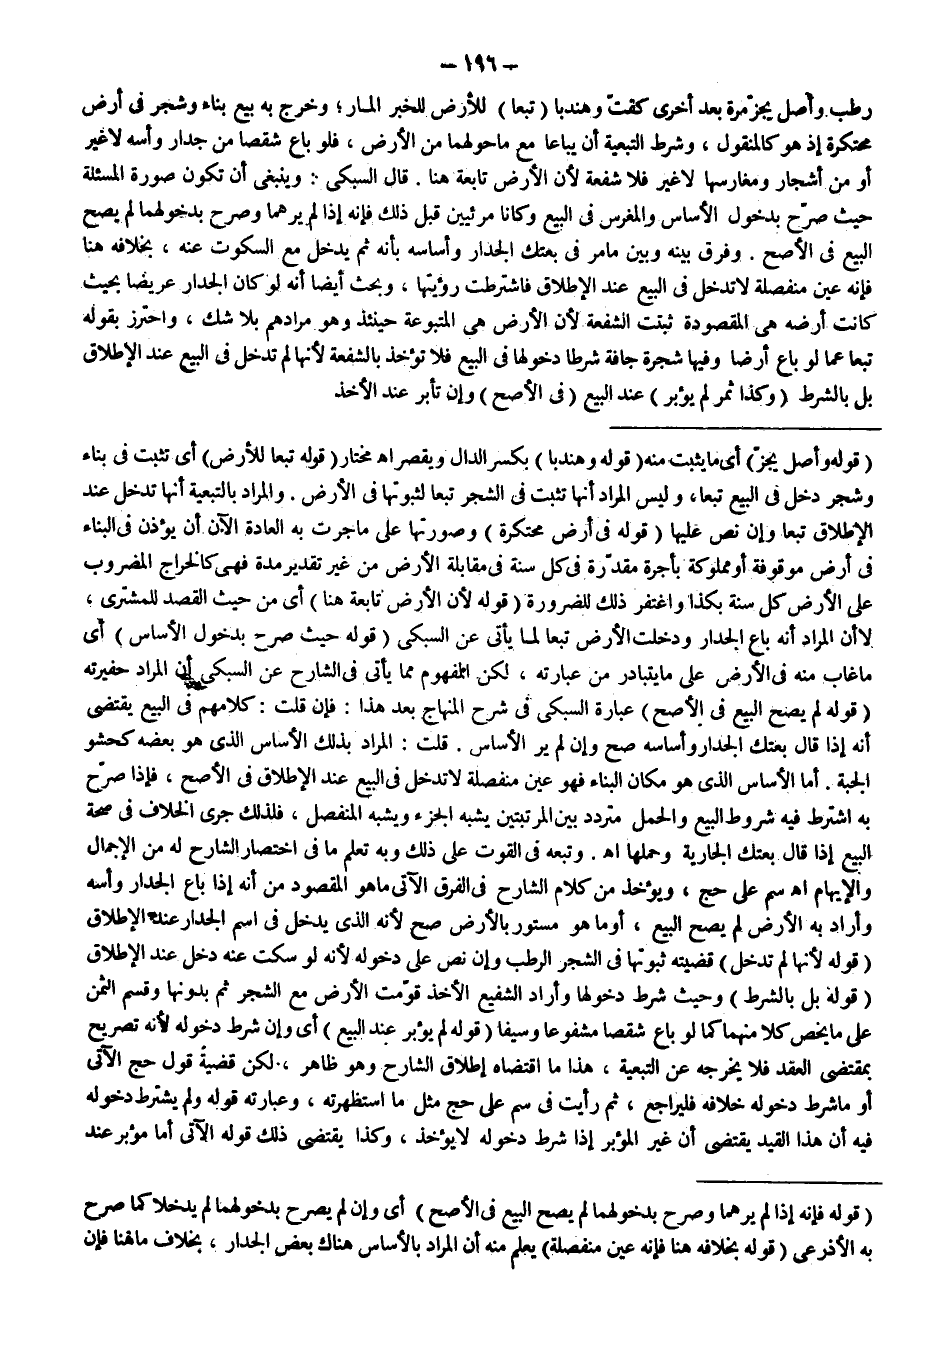 — ١٩٦ —
رطب وأصل يجزّ مرة بعد أخرى كقتّ وهندبا ( تبعا ) للأرض للخبر المار ؛ وخرج به بيع بناء وشجر فى أرض
محتكرة إذ هو كالمنقول ، وشرط التبعية أن يباعا مع ماحولهما من الأرض ، فلو باع شقصا من جدار وأسه لاغير
أو من أشجار ومغارسها لاغير فلا شفعة لأن الأرض تابعة هنا . قال السبكى : وينبغى أن تكون صورة المسئلة
حيث صرّح بدخول الأساس والمغرس فى البيع وكانا مرئيين قبل ذلك فإنه إذا لم يرهما وصرح بدخولهما لم يصح
البيع فى الأصح . وفرق بينه وبين مامر فى بعتك الجدار وأساسه بأنه ثم يدخل مع السكوت عنه ، بخلافه هنا
فإنه عين منفصلة لاتدخل فى البيع عند الإطلاق فاشترطت رؤيتها ، وبحث أيضا أنه لو كان الجدار عريضا بحيث
كانت أرضه هى المقصودة ثبتت الشفعة لأن الأرض هى المتبوعة حينئذ وهو مرادهم بلا شك ، واحترز بقوله
تبعا عما لو باع أرضا وفيها شجرة جافة شرطا دخولها فى البيع فلا تؤخذ بالشفعة لأنها لم تدخل فى البيع عند الإطلاق
بل بالشرط ( وكذا ثمر لم يؤبر ) عند البيع ( فى الأصح ) وإن تأبر عند الأخذ
( قوله وأصل يجزّ ) أى مايثبت منه ( قوله وهندبا ) بكسر الدال ويقصر اه مختار ( قوله تبعا للأرض ) أى تثبت فى بناء
وشجر دخل فى البيع تبعا ، وليس المراد أنها تثبت فى الشجر تبعا لثبوتها فى الأرض . والمراد بالتبعية أنها تدخل عند
الإطلاق تبعا وإن نص عليها ( قوله فى أرض محتكرة ) وصورتها على ماجرت به العادة الآن أن يؤذن فى البناء
فى أرض موقوفة أو مملوكة بأجرة مقدّرة فى كل سنة فى مقابلة الأرض من غير تقدير مدة فهى كالخراج المضروب
على الأرض كل سنة بكذا واغتفر ذلك للضرورة ( قوله لأن الأرض تابعة هنا ) أى من حيث القصد للمشترى ،
لاأن المراد أنه باع الجدار ودخلت الأرض تبعا لما يأتى عن السبكى ( قوله حيث صرح بدخول الأساس ) أى
ماغاب منه فى الأرض على مايتبادر من عبارته ، لكن المفهوم مما يأتى فى الشارح عن السبكى أن المراد حفيرته
( قوله لم يصح البيع فى الأصح ) عبارة السبكى فى شرح المنهاج بعد هذا : فإن قلت : كلامهم فى البيع يقتضى
أنه إذا قال بعتك الجدار وأساسه صح وإن لم ير الأساس . قلت : المراد بذلك الأساس الذى هو بعضه كحشو
الجبة . أما الأساس الذى هو مكان البناء فهو عين منفصلة لاتدخل فى البيع عند الإطلاق فى الأصح ، فإذا صرّح
به اشترط فيه شروط البيع والحمل متردد بين المرتبتين يشبه الجزء ويشبه المنفصل ، فلذلك جرى الخلاف فى صحة
البيع إذا قال بعتك الجارية وحملها اه . وتبعه فى القوت على ذلك وبه تعلم ما فى اختصار الشارح له من الإجمال
والإيهام اه سم على حج ، ويؤخذ من كلام الشارح فى الفرق الآتى ماهو المقصود من أنه إذا باع الجدار وأسه
وأراد به الأرض لم يصح البيع ، أوما هو مستور بالأرض صح لأنه الذى يدخل فى اسم الجدار عند الإطلاق
( قوله لأنها لم تدخل ) قضيته ثبوتها فى الشجر الرطب وإن نص على دخوله لأنه لو سكت عنه دخل عند الإطلاق
( قوله بل بالشرط ) وحيث شرط دخولها وأراد الشفيع الأخذ قوّمت الأرض مع الشجر ثم بدونها وقسم الثمن
على مايخص كلا منهما كما لو باع شقصا مشفوعا وسيفا ( قوله لم يؤبر عند البيع ) أى وإن شرط دخوله لأنه تصريح
بمقتضى العقد فلا يخرجه عن التبعية ، هذا ما اقتضاه إطلاق الشارح وهو ظاهر ، لكن قضية قول حج الآتى
أو ماشرط دخوله خلافه فليراجع ، ثم رأيت فى سم على حج مثل ما استظهرته ، وعبارته قوله ولم يشترط دخوله
فيه أن هذا القيد يقتضى أن غير المؤبر إذا شرط دخوله لايؤخذ ، وكذا يقتضى ذلك قوله الآتى أما مؤبر عند
( قوله فإنه إذا لم يرهما وصرح بدخولهما لم يصح البيع فى الأصح ) أى وإن لم يصرح بدخولهما لم يدخلا كما صرح
به الأذرعى ( قوله بخلافه هنا فإنه عين منفصلة ) يعلم منه أن المراد بالأساس هناك بعض الجدار ، بخلاف ماهنا فإن